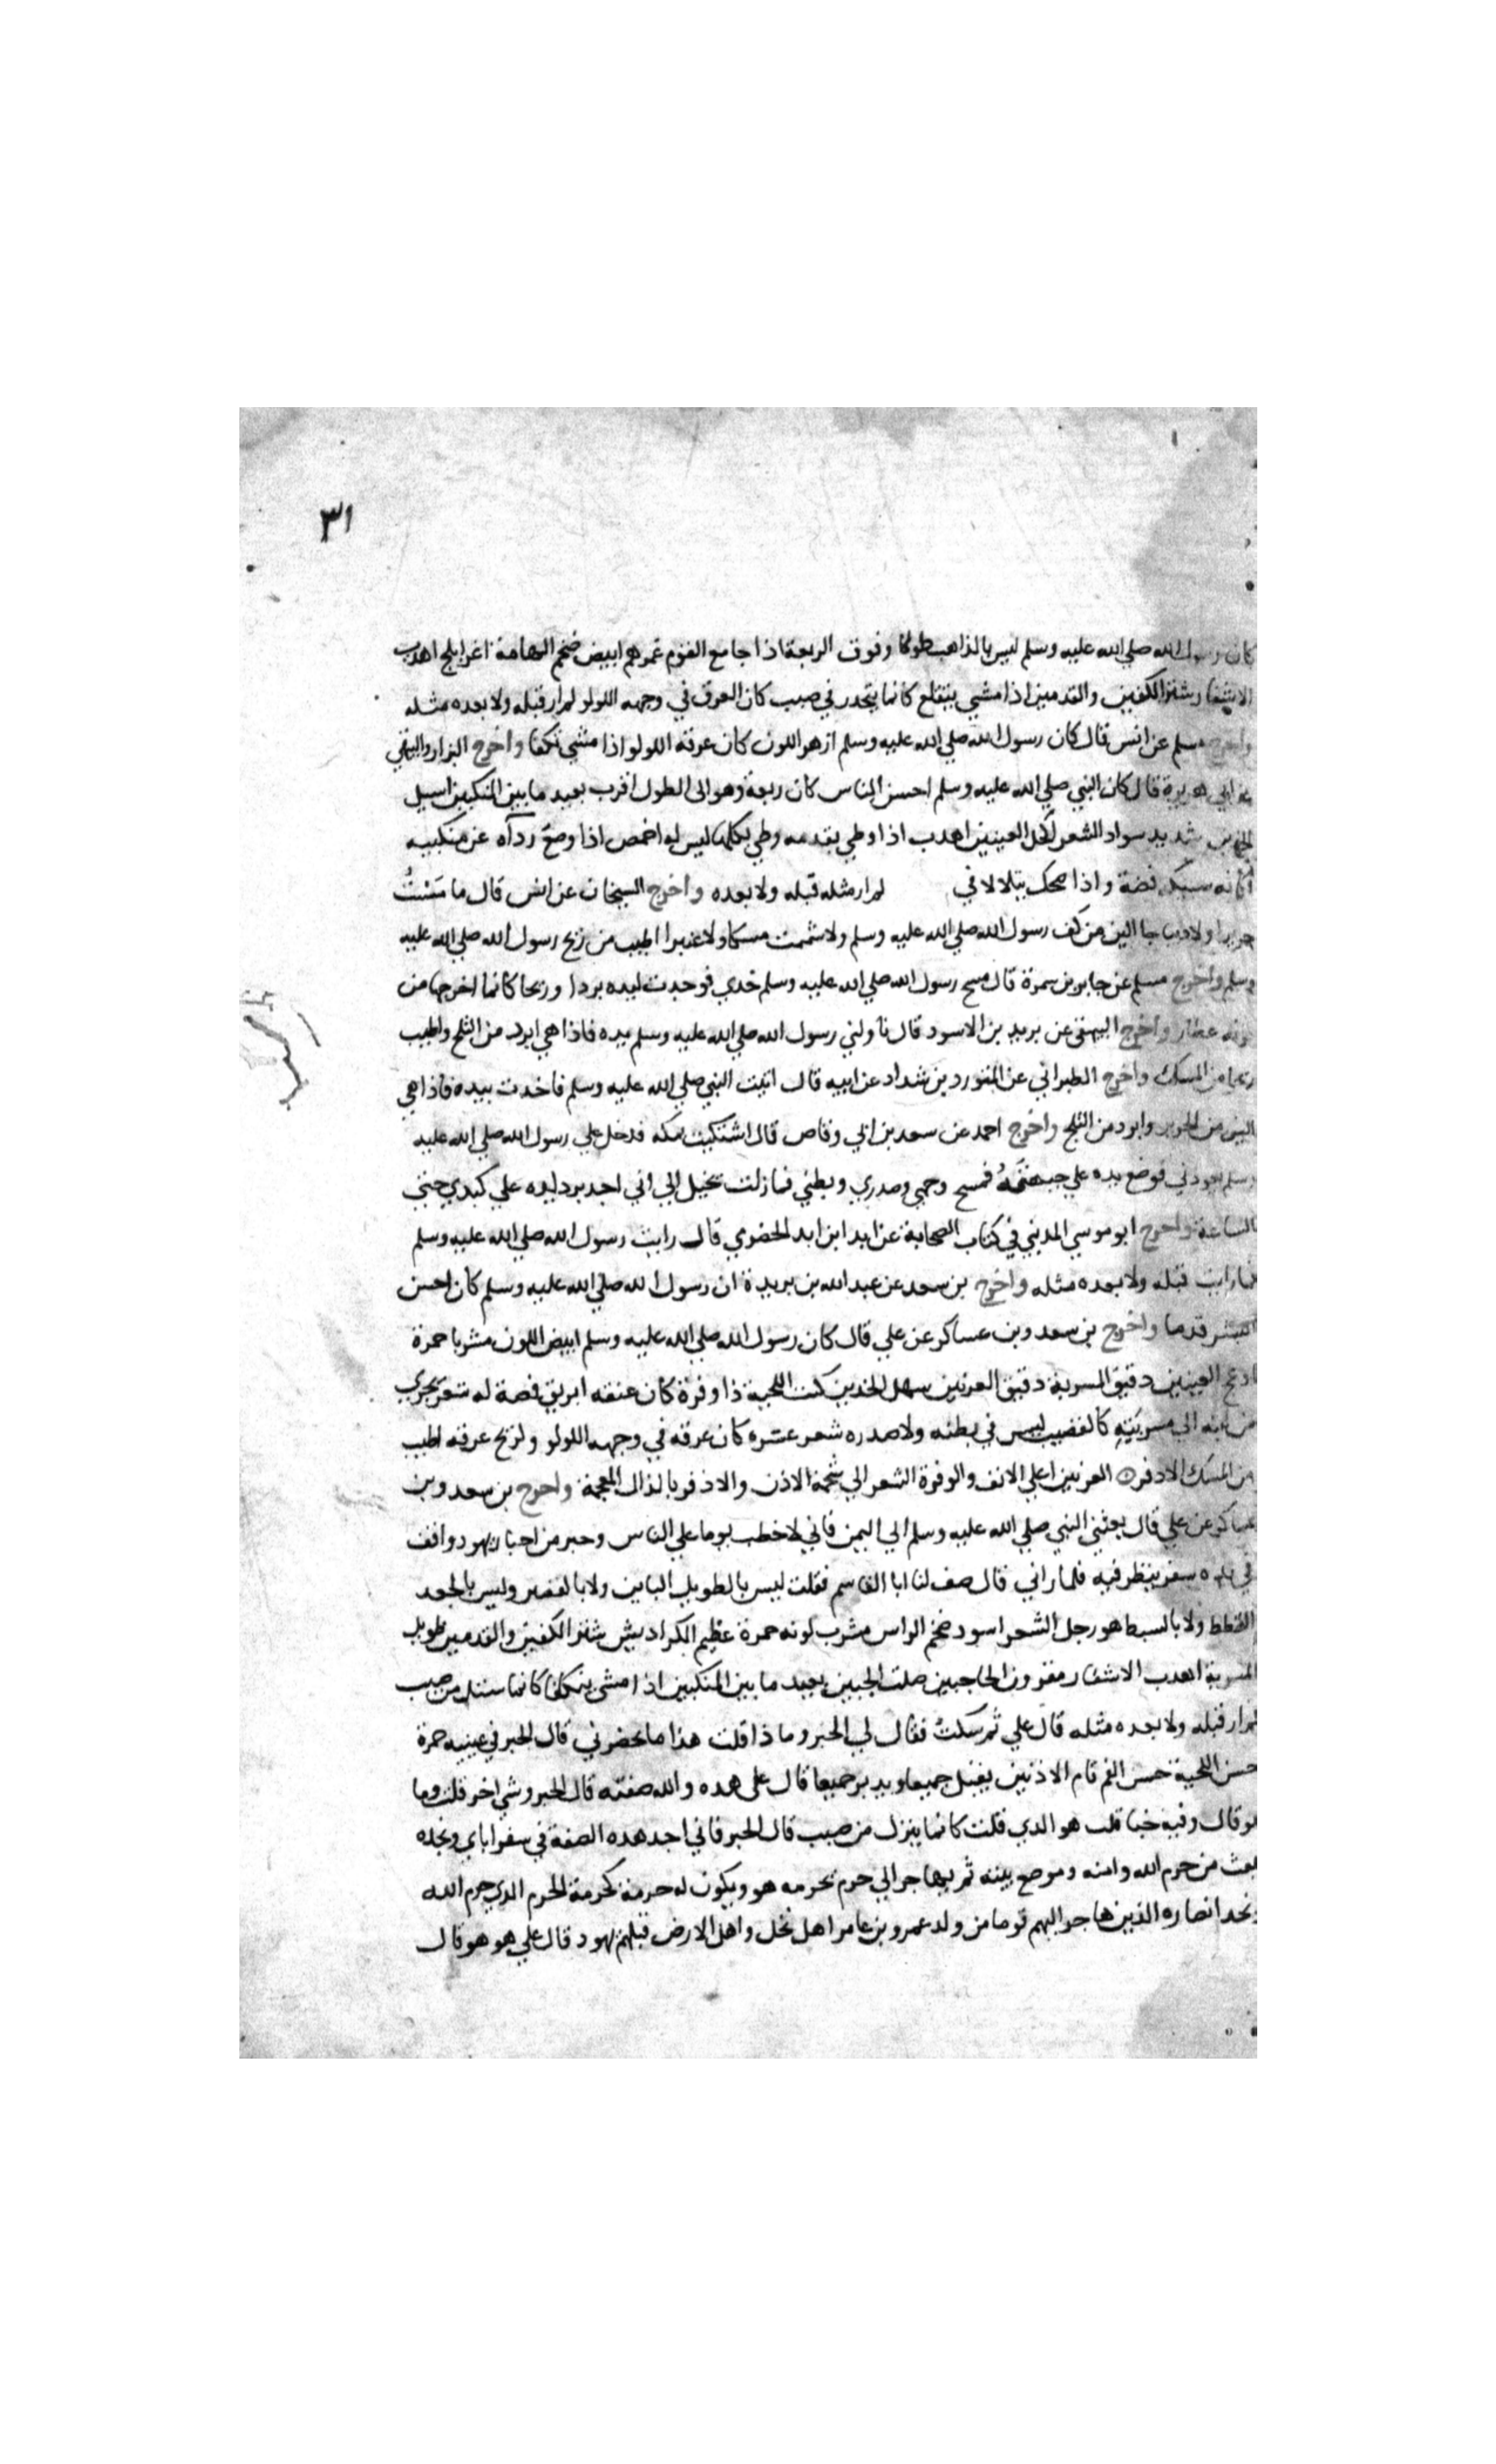 ٣١
كان رسول الله صلي الله عليه وسلم ليس بالذاهب طولا وفوق الربعة اذا جامع القوم غمرهم ابيض ضخم الهامة اغر ابلج اهدب
الاشفار شثن الكفين والقدمين اذا مشي يتقلع كانما يتحدر في صبب كان العرق في وجهه اللولو لم ار قبله ولا بعده مثله
واخرج مسلم عن انس قال كان رسول الله صلي الله عليه وسلم ازهر اللون كان عرقه اللولو اذا مشي تكفا واخرج البزار والبيهقي
عن ابي هريرة قال كان النبي صلي الله عليه وسلم احسن الناس كان ربعة وهو الى الطول اقرب بعيد ما بين المنكبين اسيل
الجبين شديد سواد الشعر اكحل العينين اهدب اذا وطي بقدمه وطي بكلها ليس له اخمص اذا وضع رداه عن منكبيه
كانه سبيكة فضة واذا ضحك يتلالا في لم ار مثله قبله ولا بعده واخرج الشيخان عن انس قال ما مَسَسْتُ
حريرا ولا ديباجا الين من كف رسول الله صلي الله عليه وسلم ولا شممت مسكا ولا عنبرا اطيب من ريح رسول الله صلي الله عليه
وسلم واخرج مسلم عن جابر بن سمرة قال مسح رسول الله صلي الله عليه وسلم خدي فوجدت ليده بردا وريحا كانما اخرجها من
جونة عطار واخرج البيهقي عن يزيد بن الاسود قال ناولني رسول الله صلي الله عليه وسلم يده فاذا هي ابرد من الثلج واطيب
ريحا من المسك واخرج الطبراني عن المستورد بن شداد عن ابيه قال اتيت النبي صلي الله عليه وسلم فاخذت بيده فاذا هي
الين من الحرير وابرد من الثلج واخرج احمد عن سعد بن ابي وقاص قال اشتكيت بمكه فدخل علي رسول الله صلي الله عليه
وسلم يعودني فوضع يده علي جبهته فمسح وجهي وصدري وبطني فما زلت يخيل الي اني اجد برد يده علي كبدي حتي
الساعة واخرج ابو موسي المديني في كتاب الصحابة عن ابد ابن ابد الحضرمي قال رايت رسول الله صلي الله عليه وسلم
فما رايت قبله ولا بعده مثله واخرج بن سعد عن عبد الله بن بريدة ان رسول الله صلي الله عليه وسلم كان احسن
البشر قدما واخرج بن سعد وبن عساكر عن علي قال كان رسول الله صلي الله عليه وسلم ابيض اللون مشربا حمرة
ادعج العينين دقيق المسربة دقيق العرنين سهل الخدين كث اللحية ذا وفرة كان عنقه ابريق فضة له شعر يجري
من لبته الي مسربته كالقضيب ليس في بطنه ولا صدره شعر غيره كان عرقه في وجهه اللولو ولريح عرقه اطيب
من المسك الاذفر العرنين اعلي الانف والوفرة الشعر الي شحمة الاذن والاذفر بالذال المعجمة واخرج بن سعد وبن
عساكر عن علي قال بعثني النبي صلي الله عليه وسلم الي اليمن فاني لاخطب يوما علي الناس وحبر من احبار يهود واقف
في يده سفر ينظر فيه فلما راني قال صف لنا ابا القاسم فقلت ليس بالطويل الباين ولا بالقصير وليس بالجعد
القطط ولا بالسبط هو رجل الشعر اسود ضخم الراس مشرب لونه حمرة عظيم الكراديس شثن الكفين والقدمين طويل
المسربة اهدب الاشفار مقرون الحاجبين صلت الجبين بعيد ما بين المنكبين اذا مشي يتكفا كانما ينزل من صبب
لم ار قبله ولا بعده مثله قال علي ثم سكت فقال لي الحبر وما ذا قلت هذا ما يحضرني قال الحبر في عينيه حمرة
حسن اللحية حسن الفم تام الاذنين يقبل جميعا ويدبر جميعا قال علي هده والله صفته قال الحبر وشي اخر قلت وما
هو قال وفيه جنا قلت هو الدي قلت كانما ينزل من صبب قال الحبر فاني اجد هده الصفة في سفر اباي ونجده
يبعث من حرم الله وامنه وموضع بيته ثم يهاجر الي حرم يحرمه هو ويكون له حرمة كحرمة الحرم الدي حرم الله
ونجد انصاره الذين هاجر اليهم قوما من ولد عمرو بن عامر اهل نخل واهل الارض قبلهم يهود قال علي هو هو قال